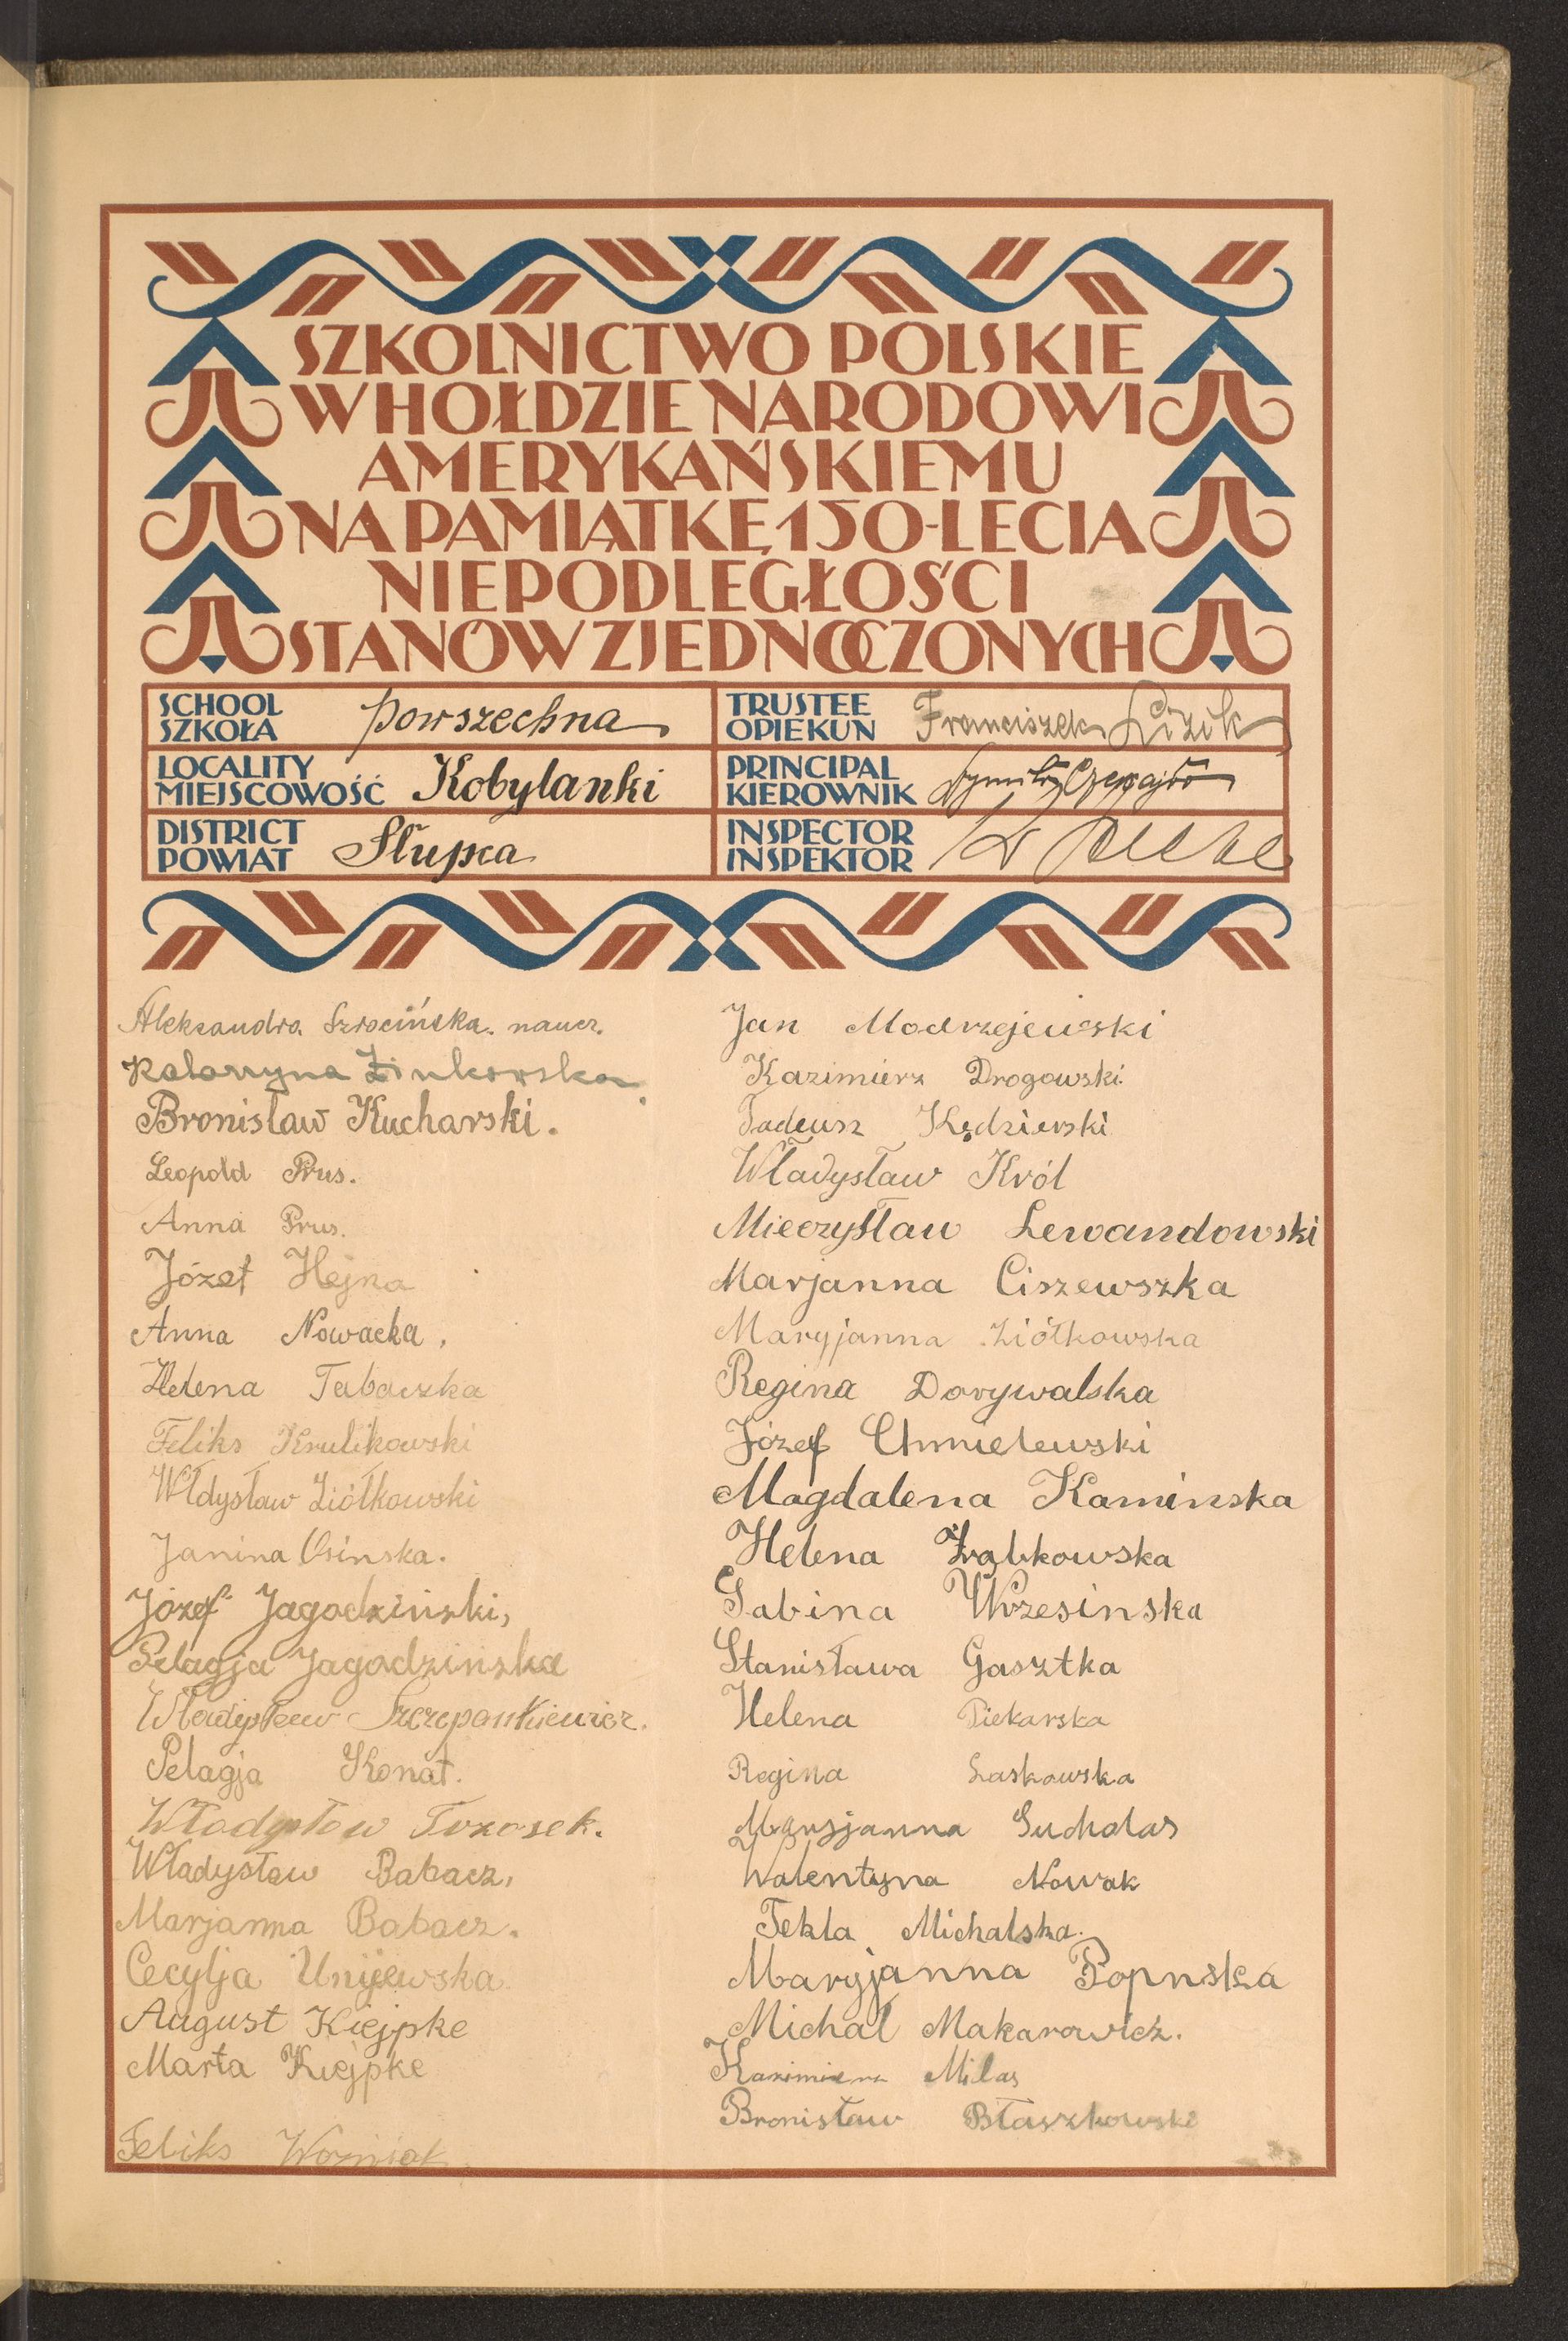 SZKOLNICTWO POLSKIE
W HOŁDZIE NARODOWI
AMERYKAŃSKIEMU
NA PAMIĄTKĘ 150-LECIA
NIEPODLEGŁOŚCI
STANÓW ZJEDNOCZONYCH
SCHOOL
SZKOŁA powszechna
TRUSTEE
OPIEKUN Franciszek
LOCALITY
MIEJSCOWOŚĆ Kobylanki
PRINCIPAL
KIEROWNIK
DISTRICT
POWIAT Słupca
INSPECTOR
INSPEKTOR
Aleksandra naucz.
Katarzyna Zinkowska
Bronisław Kucharski.
Leopold Prus.
Anna Prus.
Józef Hejna
Anna Nowacka,
Helena Tabaczka
Feliks Krulikowski
Włdysław Ziółkowski
Janina Osinska.
Józef Jagodziński,
Pelagja Jagodzinska
Władysław Szczepankiewicz.
Pelagja Konat.
Władysław
Władysław Babacz,
Marjanna Babacz.
Cecylja Unijewska
August Kiejpke
Marta Kiejpke
Feliks Wozniak
Jan Modrzejewski
Kazimierz Drogowski
Tadeusz Kędzierski
Władysław Król
Mieczysław Lewandowski
Marjanna Ciszewszka
Maryjanna Ziółkowska
Regina Dorywalska
Józef Chmielewski
Magdalena Kaminska
Helena Ząbkowska
Sabina Wrzesinska
Stanisława Gasztka
Helena Piekarska
Regina Laskowska
Maryjanna Suchalas
Walentyna Nowak
Tekla Michalska.
Maryjanna Popnska
Michał Makarowicz.
Kazimiera Milas
Bronisław Błaszkowski